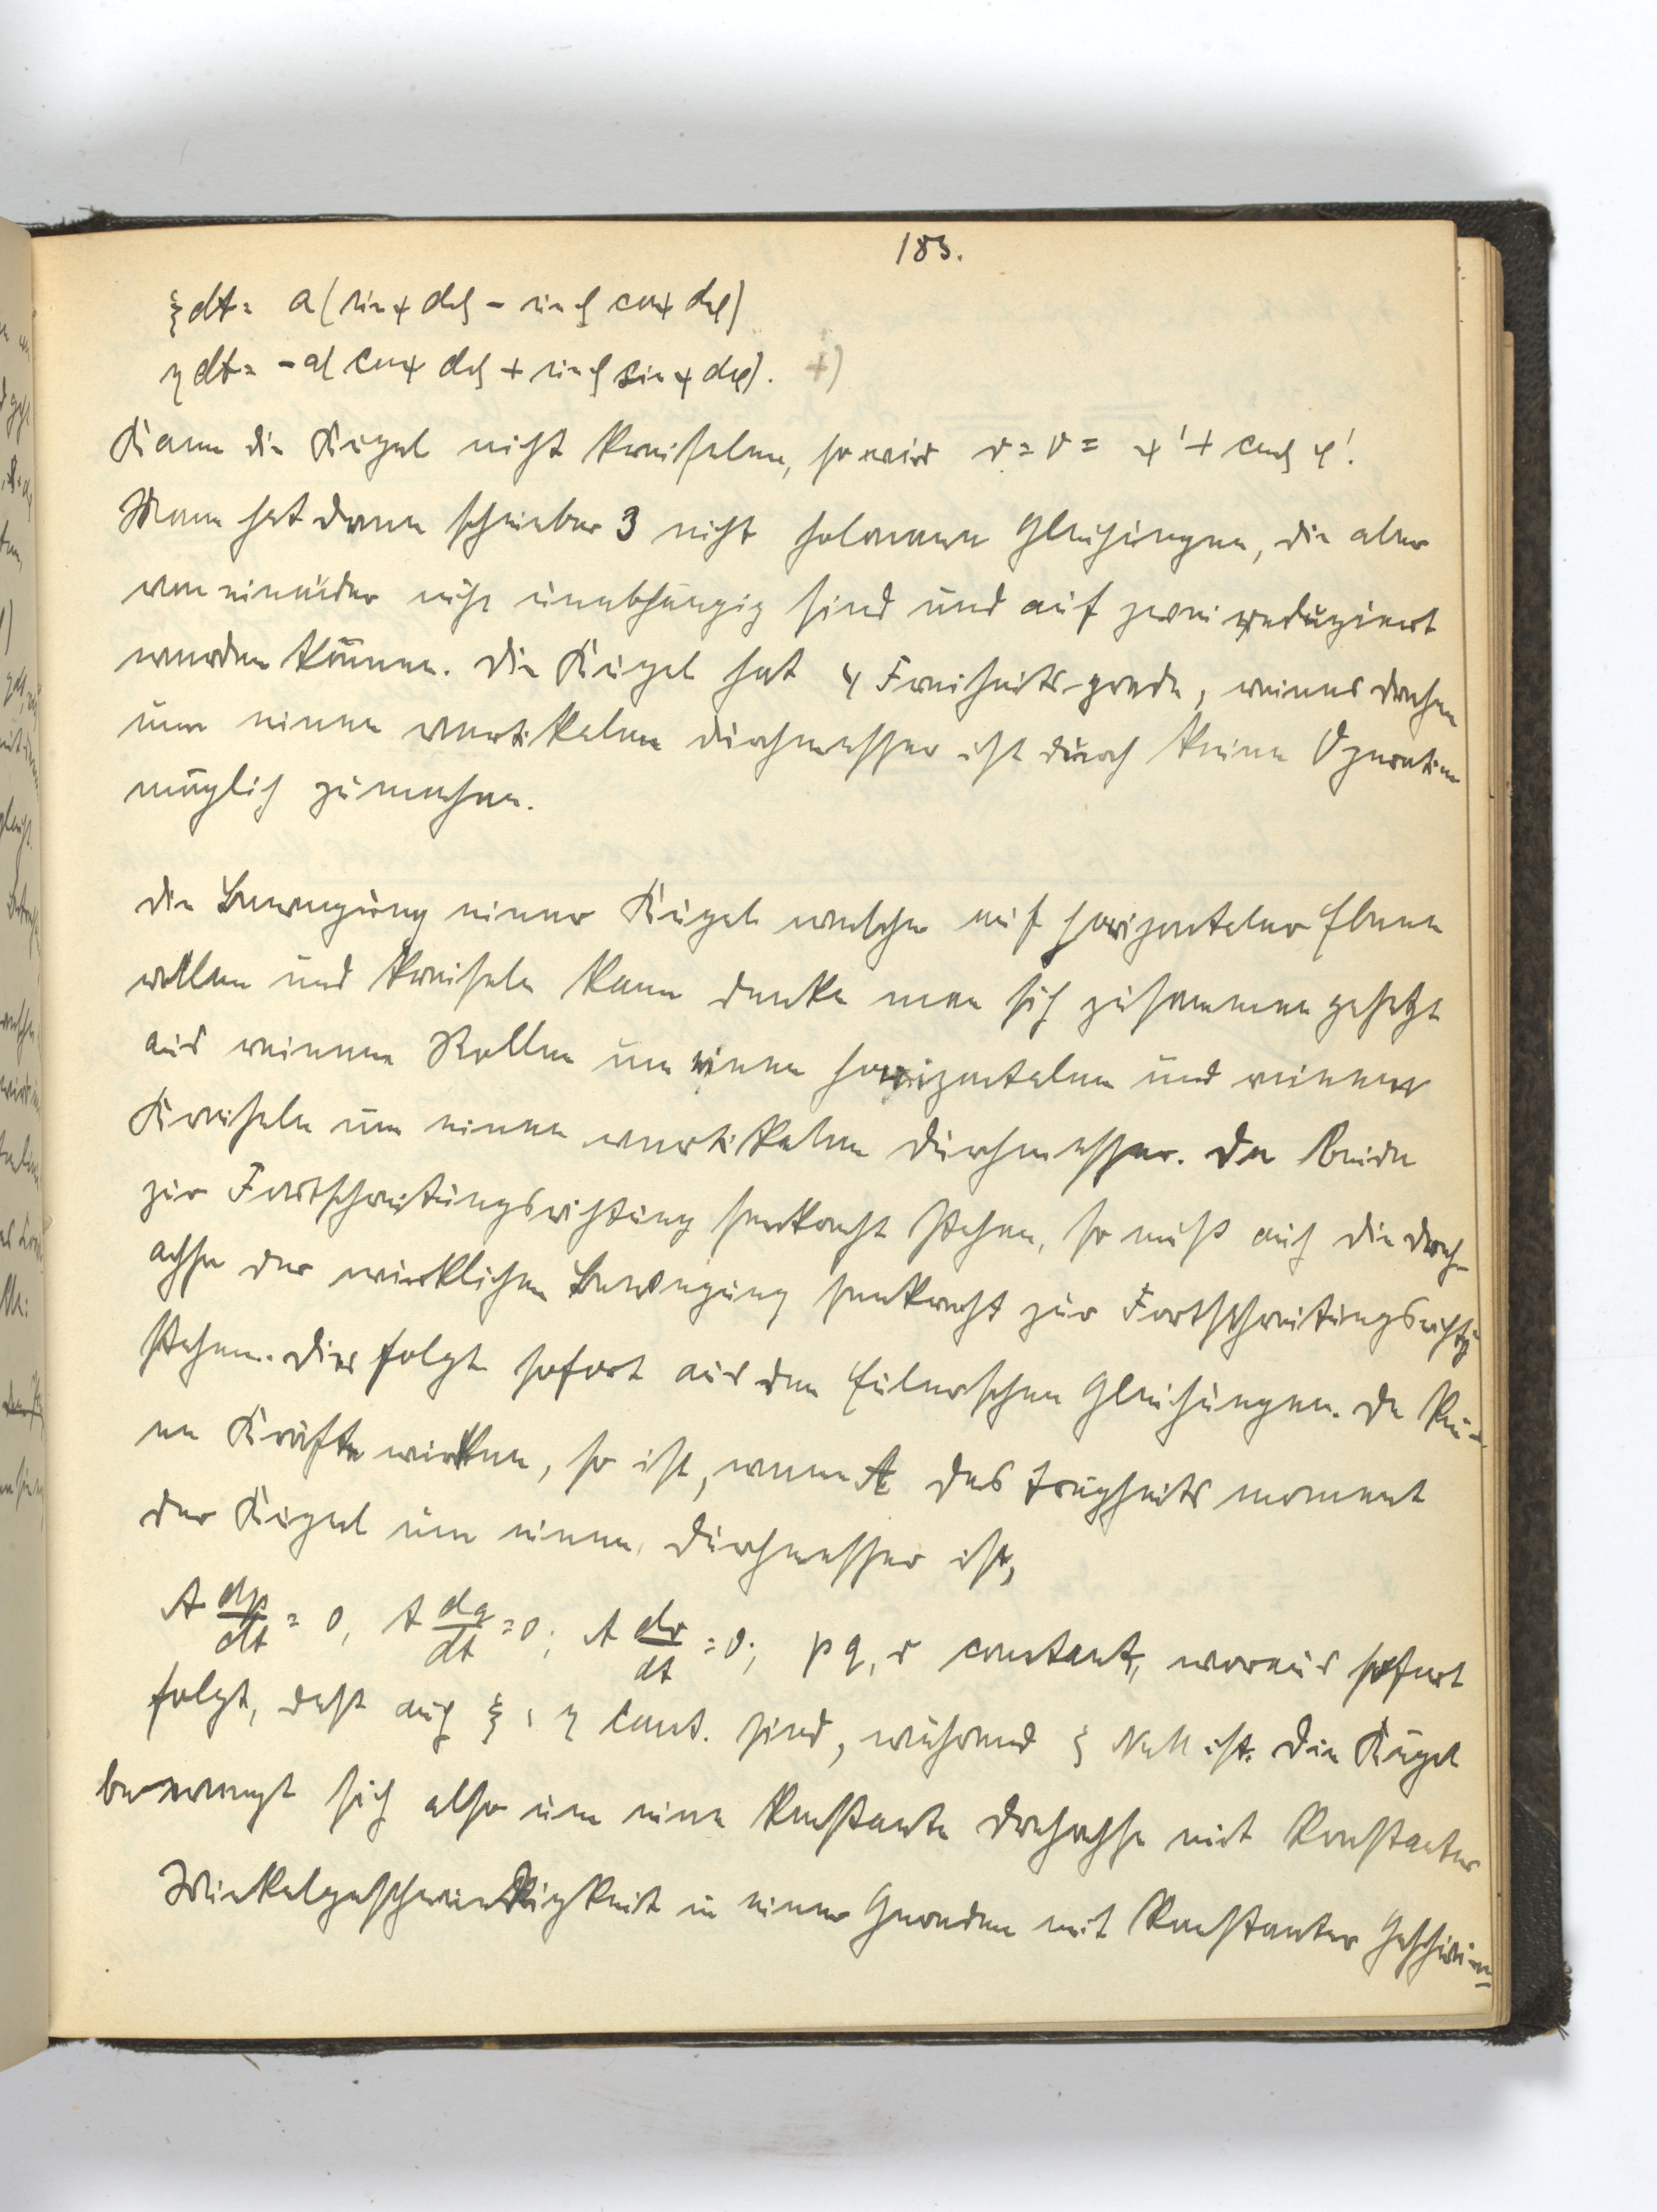 183.
ξdt = a(sinψ dϑ - sinϑ cosψ dφ)
ηdt = -a(cosψ dϑ + sinϑ sinψ dφ). +)
Kann die Kugel nicht kreiseln, so wird r = 0 = ψ' + cosϑ φ'.
Mann hat dann scheinbar 3 nicht holonome Gleichungen, die aber
von einander nicht unabhängig sind und auf zwei reduziert
werden können. Die Kugel hat 4 Freiheits-grade, reines drehen
um einen vertikalen Durchmesser ist durch keine Operation
möglich zu machen.
Die Bewegung einer Kugel welche auf horizontaler Ebene
rollen und kreiseln kann denke man sich zusammen gesetzt
aus reinem Rollen um einen horizontalen und reinem
Kreiseln um einen vertikalen Durchmesser. Da beide
zur Fortschreitungsrichtung senkrecht stehen, so muß auch die Dreh-
achse der wirklichen Bewegung senkrecht zur Fortschreitungsrichtg
stehen. Dies folgt sofort aus den Eulerschen Gleichungen. Da kei-
ne Kräfte wirken, so ist, wenn A das Trägheits moment
der Kugel um einen Durchmesser ist,
A dp/dt = 0, A dq/dt = 0; A dr/dt = 0; p q, r constant, woraus sofort
folgt, daß auch ξ, η const. sind, während ζ Null ist. Die Kugel
bewegt sich also um eine konstante Drehachse mit konstanter
Winkelgeschwindigkeit in einer Geraden mit konstanter Geschwin=